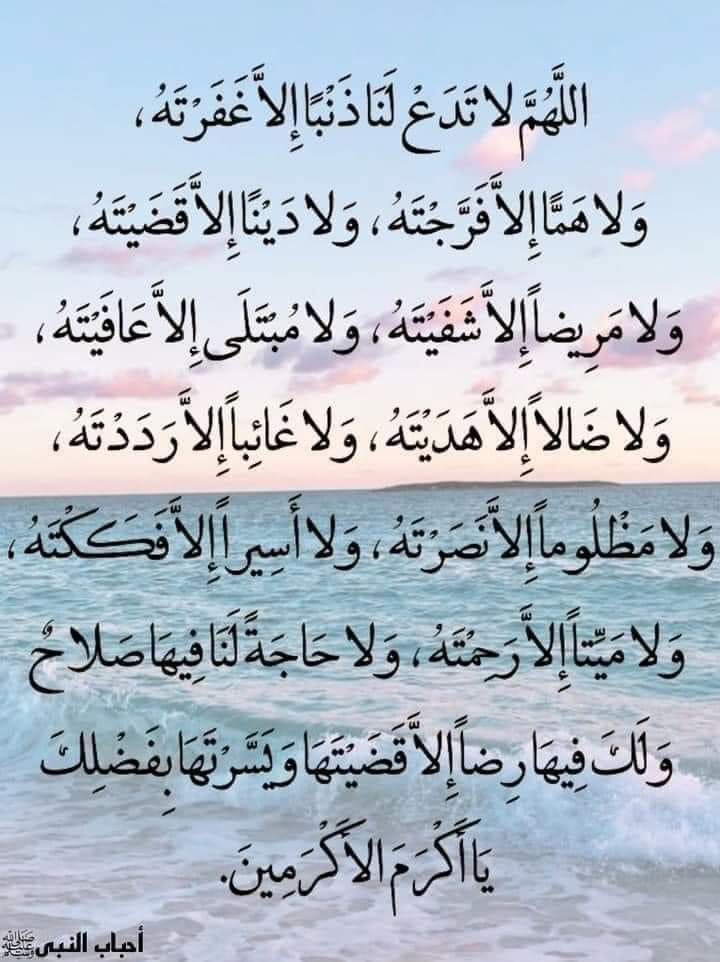 اللَّهُمَّ لا تَدَعْ لَنَا ذَنْبًا إِلاَّ غَفَرْتَهُ،
وَلا هَمًّا إِلاَّ فَرَّجْتَهُ، وَلا دَيْنًا إِلاَّ قَضَيْتَهُ،
وَلا مَرِيضاً إِلاَّ شَفَيْتَهُ، وَلا مُبْتَلَى إِلاَّ عَافَيْتَهُ،
وَلا ضَالاً إِلاَّ هَدَيْتَهُ، وَلا غَائِباً إِلاَّ رَدَدْتَهُ،
وَلا مَظْلُوماً إِلاَّ نَصَرْتَهُ، وَلا أَسِيراً إِلاَّ فَكَكْتَهُ،
وَلا مَيِّتاً إِلاَّ رَحِمْتَهُ، وَلا حَاجَةً لَنَا فِيهَا صَلاحٌ
وَلَكَ فِيهَا رِضاً إِلاَّ قَضَيْتَهَا وَيَسَّرْتَهَا بِفَضْلِكَ
يَا أَكْرَمَ الأَكْرَمِينَ.
أحباب النبي ﷺ